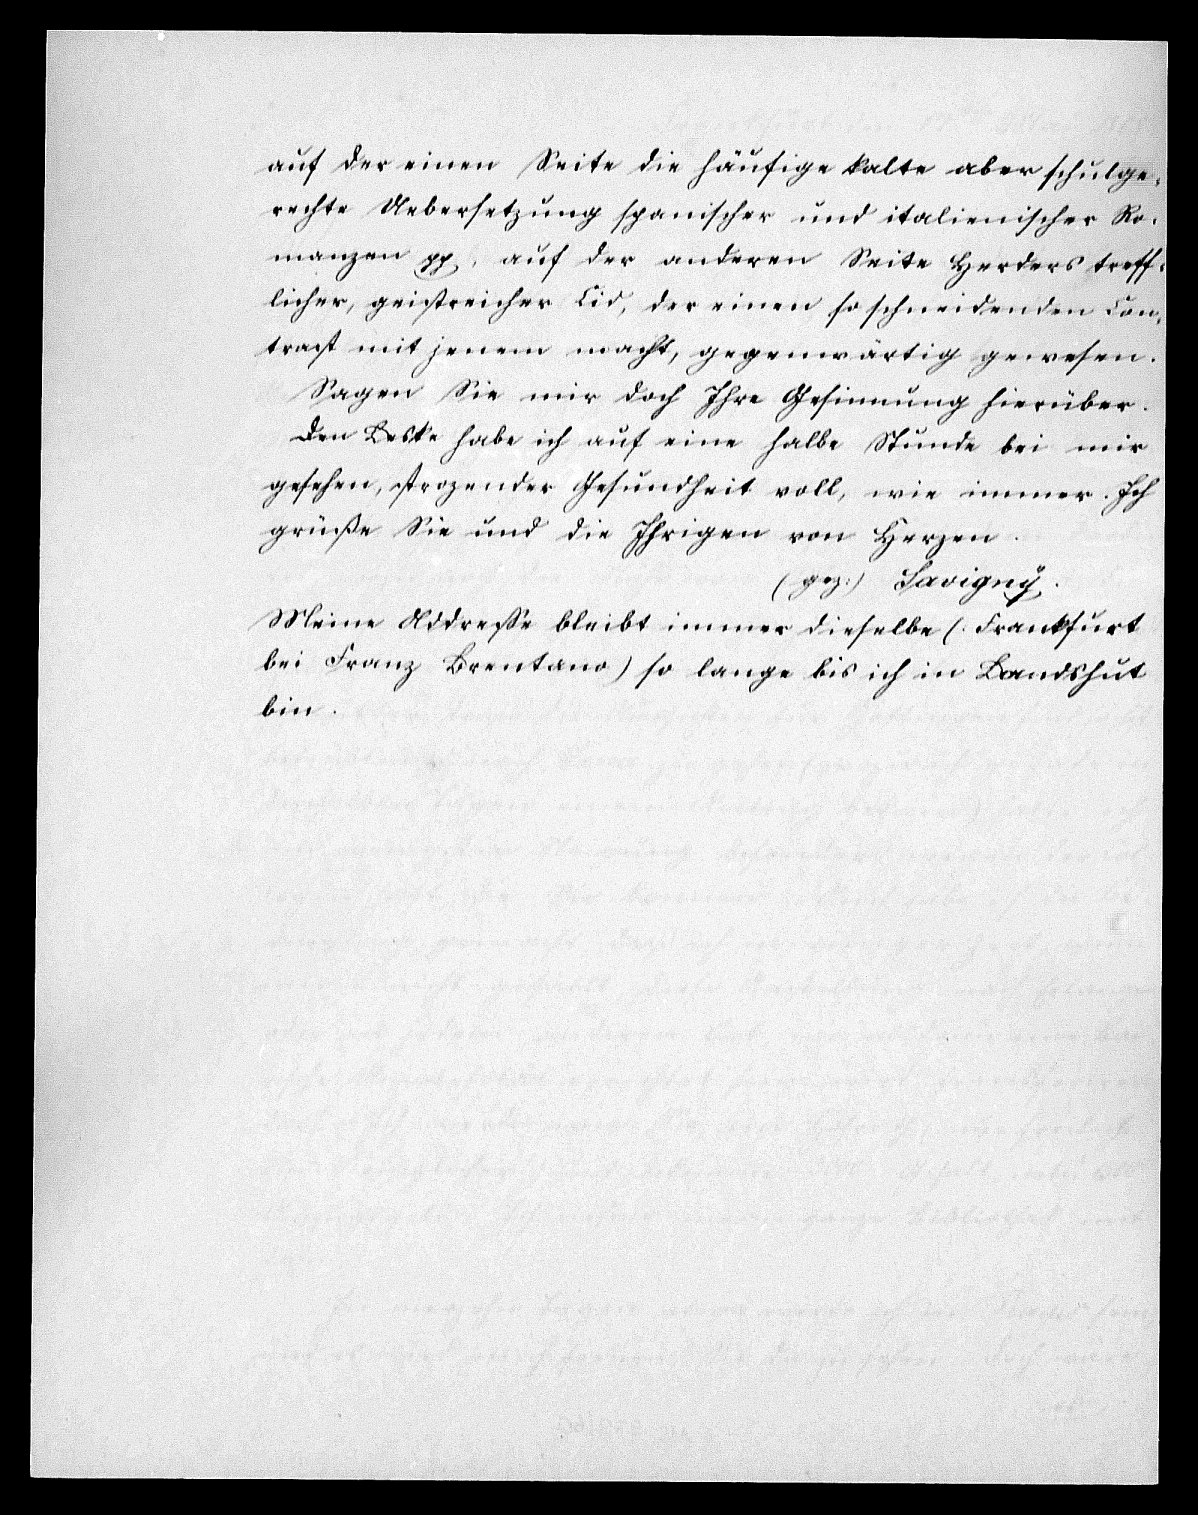 auf der einen Seite die häufige kalte aber schulge-
rechte Uebersetzung spanischer und italienischer Ro-
manzen pp, auf der anderen Seite Herders treff-
licher, geistreicher Cid, der einen so schneidenden Con-
trast mit jenem macht, gegenwärtig gewesen.
Sagen Sie mir doch Ihre Gesinnung hierüber.
Den Leske habe ich auf eine halbe Stunde bei mir
gesehen, strozender Gesundheit voll, wie immer. Ich
grüße Sie und die Ihrigen von Herzen.
(gez:) Savigny.
Meine Addresse bleibt immer dieselbe (Frankfurt
bei Franz Brentano) so lange bis ich in Landshut
bin.